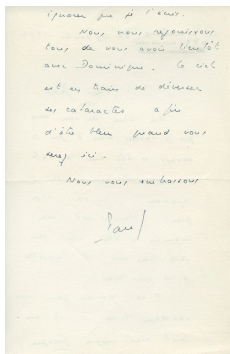 ignorer que je l'écris.
Nous nous réjouissons
tous de vous avoir bientôt
avec Dominique. Le ciel
est en train de déverser
ses cataractes afin
d'être bleu quand vous
serez ici.
Nous vous embrassons